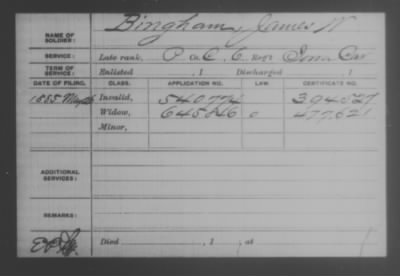 NAME OF SOLDIER: Bingham, James W
SERVICE: Late rank, P Co. C, 6 Reg't Iowa Cav
TERM OF SERVICE: Enlisted , 1 Discharged , 1
DATE OF FILING. CLASS. APPLICATION NO. LAW. CERTIFICATE NO.
1885 Invalid, 540.774
Widow, 645.846 477,621
Minor,
ADDITIONAL SERVICES:
REMARKS:
Died , 1 , at